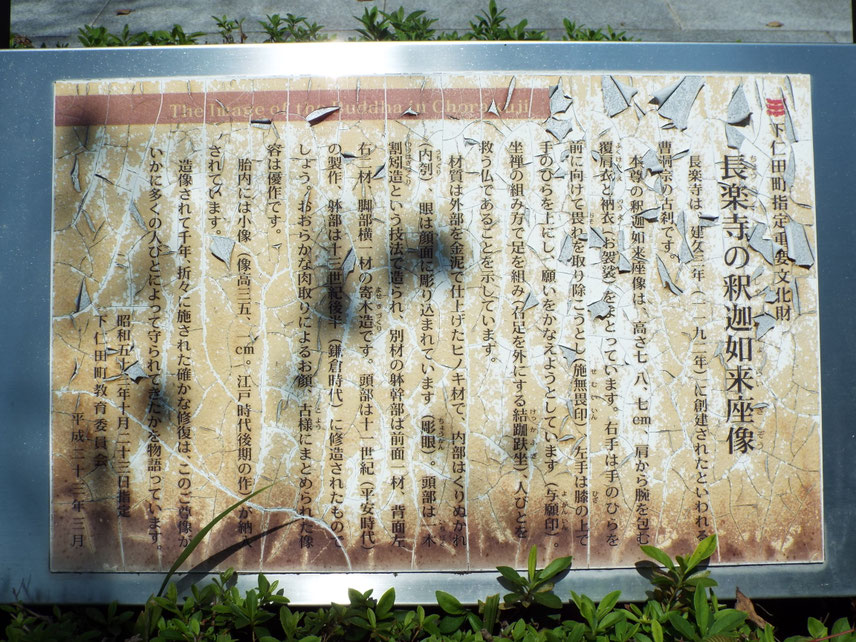 The Image of the Buddha in Chorakuji
下仁田町指定重要文化財
長楽寺の釈迦如来座像
長楽寺は、建久三年(一一九二年)に創建されたといわれる
曹洞宗の古刹です。
本尊の釈迦如来座像は、高さ七八.七cm、肩から腕を包む
覆肩衣と衲衣(お袈裟)をまとっています。右手は手のひらを
前に向けて畏れを取り除こうとし(施無畏印)、左手は膝の上で
手のひらを上にし、願いをかなえようとしています(与願印)。
坐禅の組み方で足を組み、右足を外にする結跏趺坐、人びとを
救う仏であることを示しています。
材質は外部を金泥で仕上げたヒノキ材で、内部はくりぬかれ
(内刳)、眼は顔面に彫り込まれています(彫眼)。頭部は一木
割矧造という技法で造られ、別材の躰幹部は前面一材、背面左
右二材、脚部横一材の寄木造です。頭部は十一世紀(平安時代)
の製作、躰部は十三世紀後半(鎌倉時代)に修造されたもので
しょう。おおらかな肉取りによるお顔、古様にまとめられた像
容は優作です。
胎内には小像(像高三五.一cm。江戸時代後期の作)が納入
されています。
造像されて千年、折々に施された確かな修復は、このご尊像が
いかに多くの人びとによって守られてきたかを物語っています。
昭和五十 年十月二十三日指定
下仁田町教育委員会
平成二十三年三月